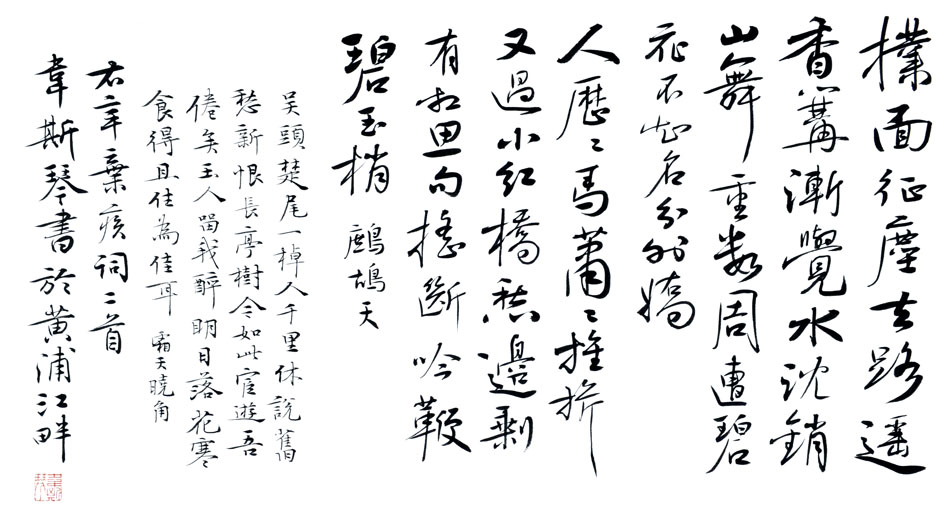 撲面征塵去路遥
香篝漸覺水沈銷
山舞重数周遭碧
花不知名分外嬌
人歷〻馬蕭〻旌旂
又過小紅橋愁邊剩
有相思句搖斷吟鞭
碧玉梢 鷓鴣天
吴頭楚尾一棹人千里休説舊
愁新恨長亭樹今如此宦遊吾
倦矣玉人留我醉明日落花寒
食得且住為佳耳 霜天曉角
右辛棄疾詞二首
韋斯琴書於黄浦江畔